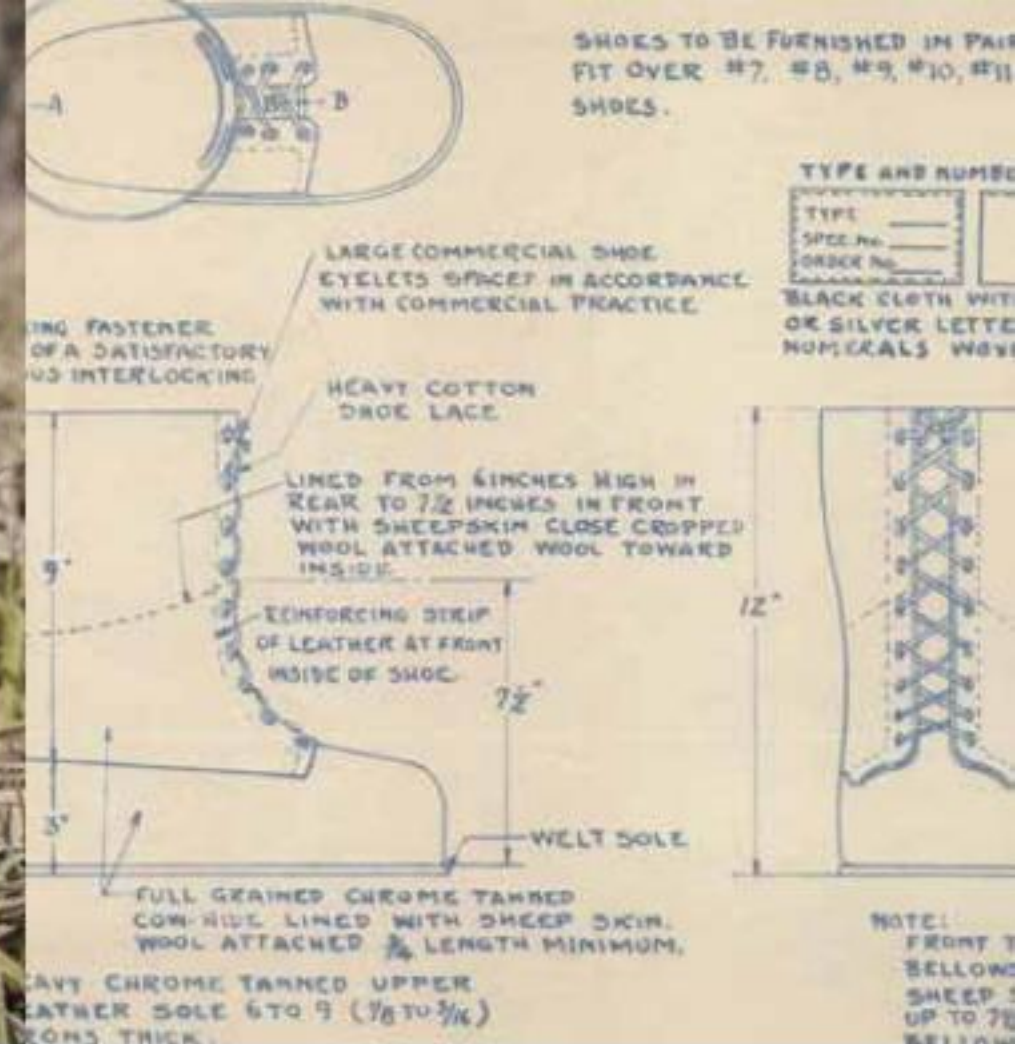 SHOES TO BE FURNISHED IN PAIR
FIT OVER #7, #8, #9, #10, #11
SHOES.
A
B
B
TYPE AND NUMBE
TYPE
SPEC. No.
ORDER No.
BLACK CLOTH WIT
OR SILVER LETTE
NUMERALS WOV
LARGE COMMERCIAL SHOE
EYELETS SPACED IN ACCORDANCE
WITH COMMERCIAL PRACTICE
ING FASTENER
OF A SATISFACTORY
US INTERLOCKING
HEAVY COTTON
SHOE LACE
LINED FROM 6 INCHES HIGH IN
REAR TO 7½ INCHES IN FRONT
WITH SHEEPSKIN CLOSE CROPPED
WOOL ATTACHED WOOL TOWARD
INSIDE
9"
REINFORCING STRIP
OF LEATHER AT FRONT
INSIDE OF SHOE
7½"
12"
3"
WELT SOLE
FULL GRAINED CHROME TANNED
COW-HIDE LINED WITH SHEEP SKIN.
WOOL ATTACHED ¾ LENGTH MINIMUM.
EAVY CHROME TANNED UPPER
EATHER SOLE 6 TO 9 (⅛ TO 3/16)
RONS THICK.
NOTE:
FRONT T
BELLOWS
SHEEP S
UP TO 7½
BELLOW